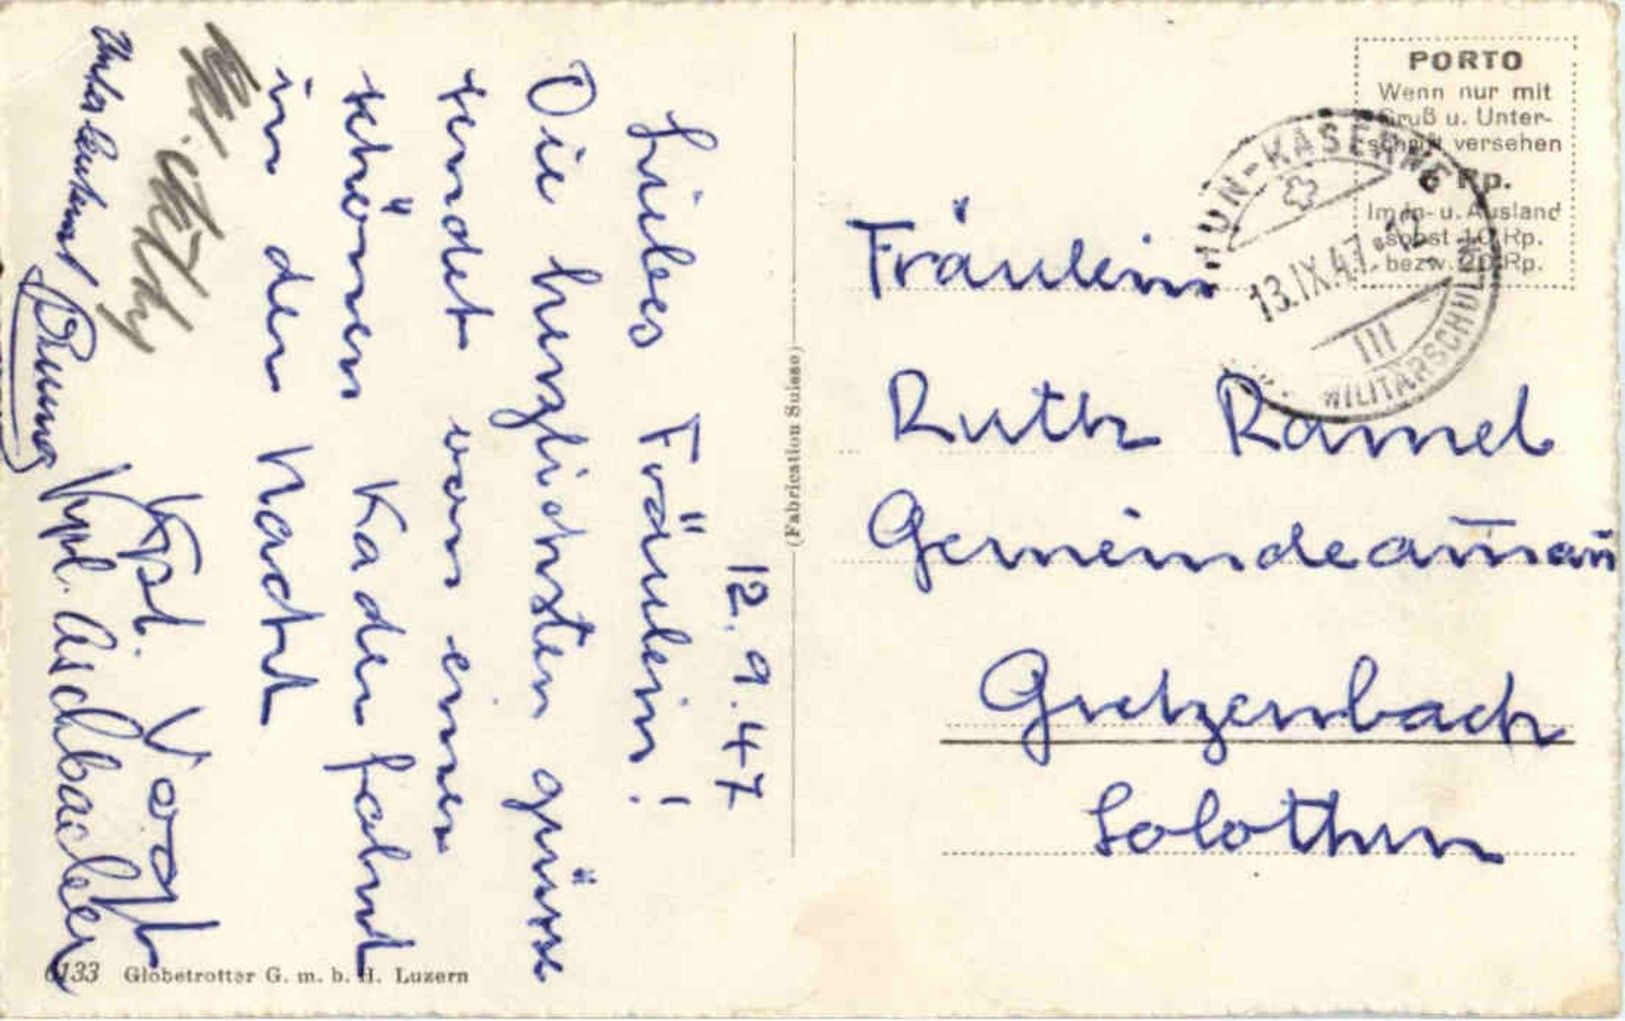 12.9.47
Liebes Fräulein!
Die herzlichsten grüsse
sendet von einer
schönen Kader fahrt
in der Nacht
Kpl. Vogt
Kpl. Aschbacher
PORTO
Wenn nur mit
Gruß u. Unter-
schrift versehen
6 Rp.
Im In- u. Ausland
sonst 10 Rp.
bezw. 20 Rp.
THUN-KASERNE
13.IX.47
III
MILITÄRSCHULEN
Fräulein
Ruth Ramel
Gemeindeam̄an̄
Gretzenbach
Solothurn
(Fabrication Suisse)
6133 Globetrotter G. m. b. H. Luzern